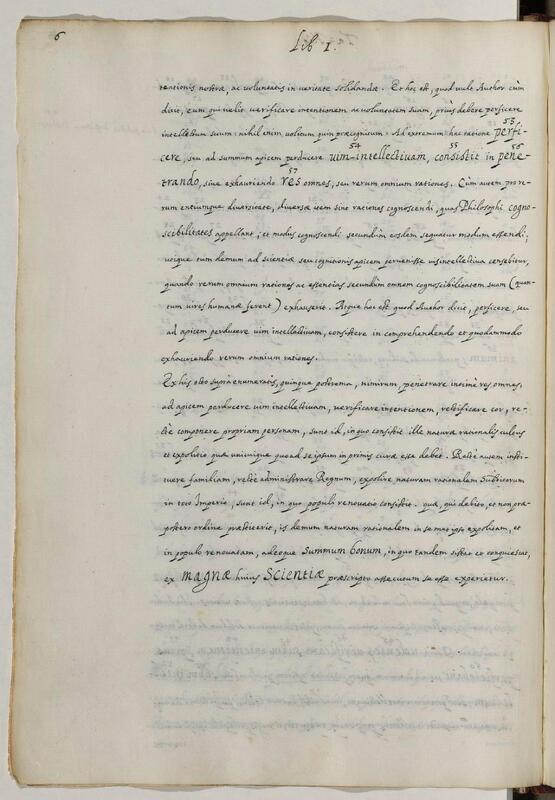 6
Lib 1.
tentionis nostræ, ac voluntatis in veritate solidandæ. Et hoc est, quod vult Author cùm
dicit, eum qui velit verificare intentionem ac voluntatem suam, priùs debere perficere
intellectum suum: nihil enim volitum quin præcognitum. Ad extremum hac ratione perfi-
53
cere, seu ad summum apicem perducere vim-intellectivam, consistit in pene-
54 55 56
trando, sive exhauriendo res omnes, seu rerum omnium rationes. Cùm autem pro re-
57
rum entiumque diversitate, diversæ item sint rationes cognoscendi, quas Philosophi cogno-
scibilitates appellant; et modus cognoscendi secundùm eosdem sequatur modum essendi;
utique tum demum ad scientiæ seu cognitionis apicem pervenisse vis intellectiva censebitur,
quando rerum omnium rationes ac essentias secundùm omnem cognoscibilitatem suam (quan-
tum vires humanæ ferent) exhauserit. Atque hoc est quod Author dicit, perficere, seu
ad apicem perducere vim intellectivam, consistere in comprehendendo et quodammodo
exhauriendo rerum omnium rationes.
Ex his octo supra enumeratis, quinque postrema, nimirum, penetrare intimè res omnes,
ad apicem perducere vim intellectivam, verificare intentionem, rectificare cor, re-
ctè componere propriam personam, sunt id, in quo consistit ille naturæ rationalis cultus
et expolitio quæ unicuique quoad se ipsum in primis curæ esse debet. Rectè autem insti-
tuere familiam, rectè administrare Regnum, expolire naturam rationalem Subditorum
in toto Imperio, sunt id, in quo populi renovatio consistit. quæ, qui debito, et non præ-
postero ordine præstiterit, is demum naturam rationalem in semet ipso expolitam, et
in populo renovatam, adeoque summum bonum, in quo tandem sistat et conquiescat,
ex magnæ huius Scientiæ præscripto assecutum se esse experietur.